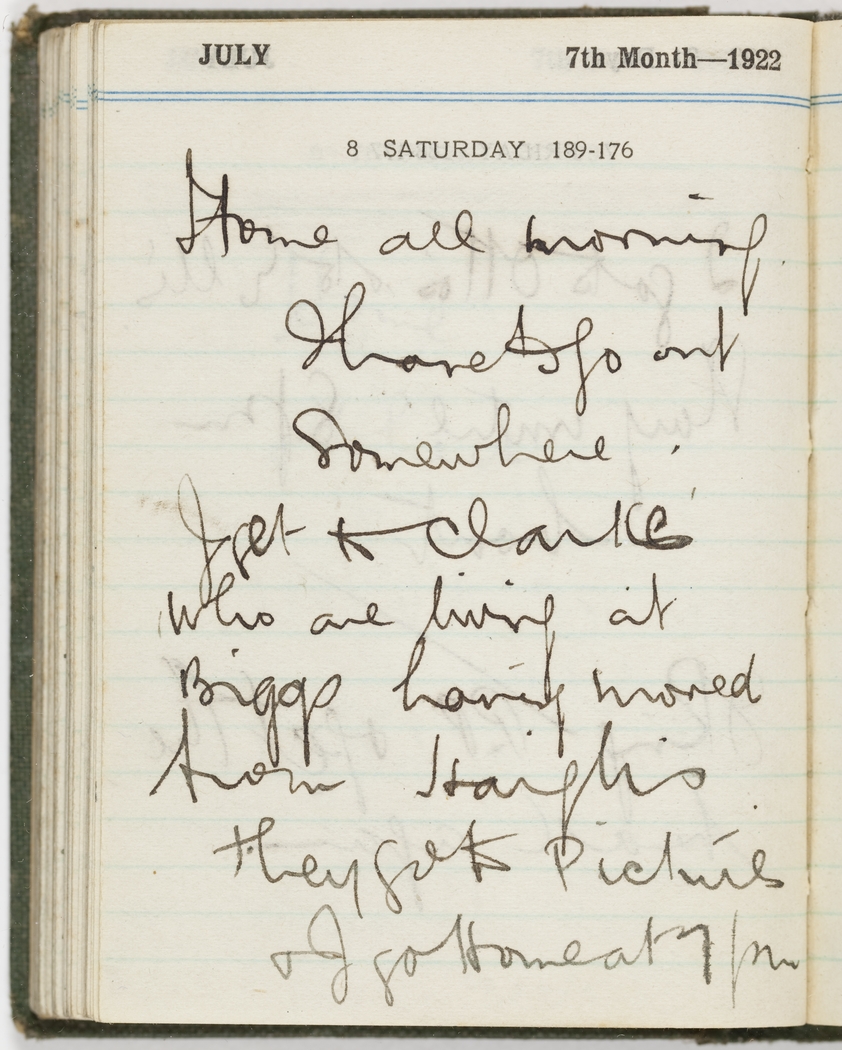 JULY 7th Month—1922
8 SATURDAY 189-176
Home all morning.
I have to go out
Somewhere.
I get to Clarke's
who are living at
Biggs having moved
from Haighs
they go to Pictures
& I go Home at 7 pm